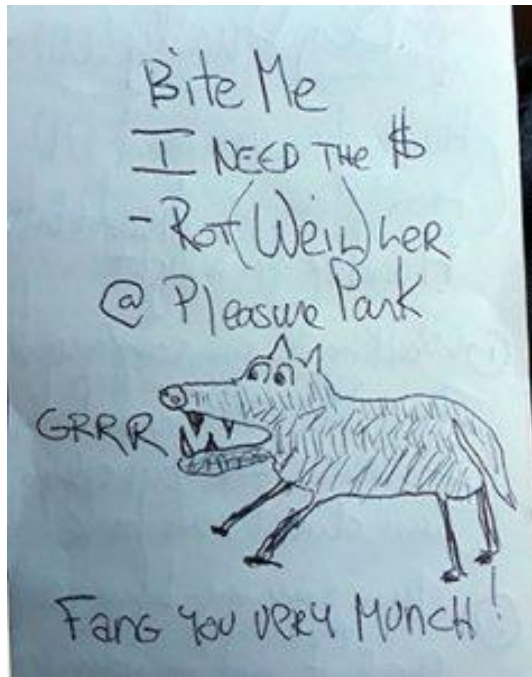 Bite Me
I NEED THE $
- Rott(Weil)her
@ Pleasure Park
GRRR
FANG YOU VERY MUNCH!